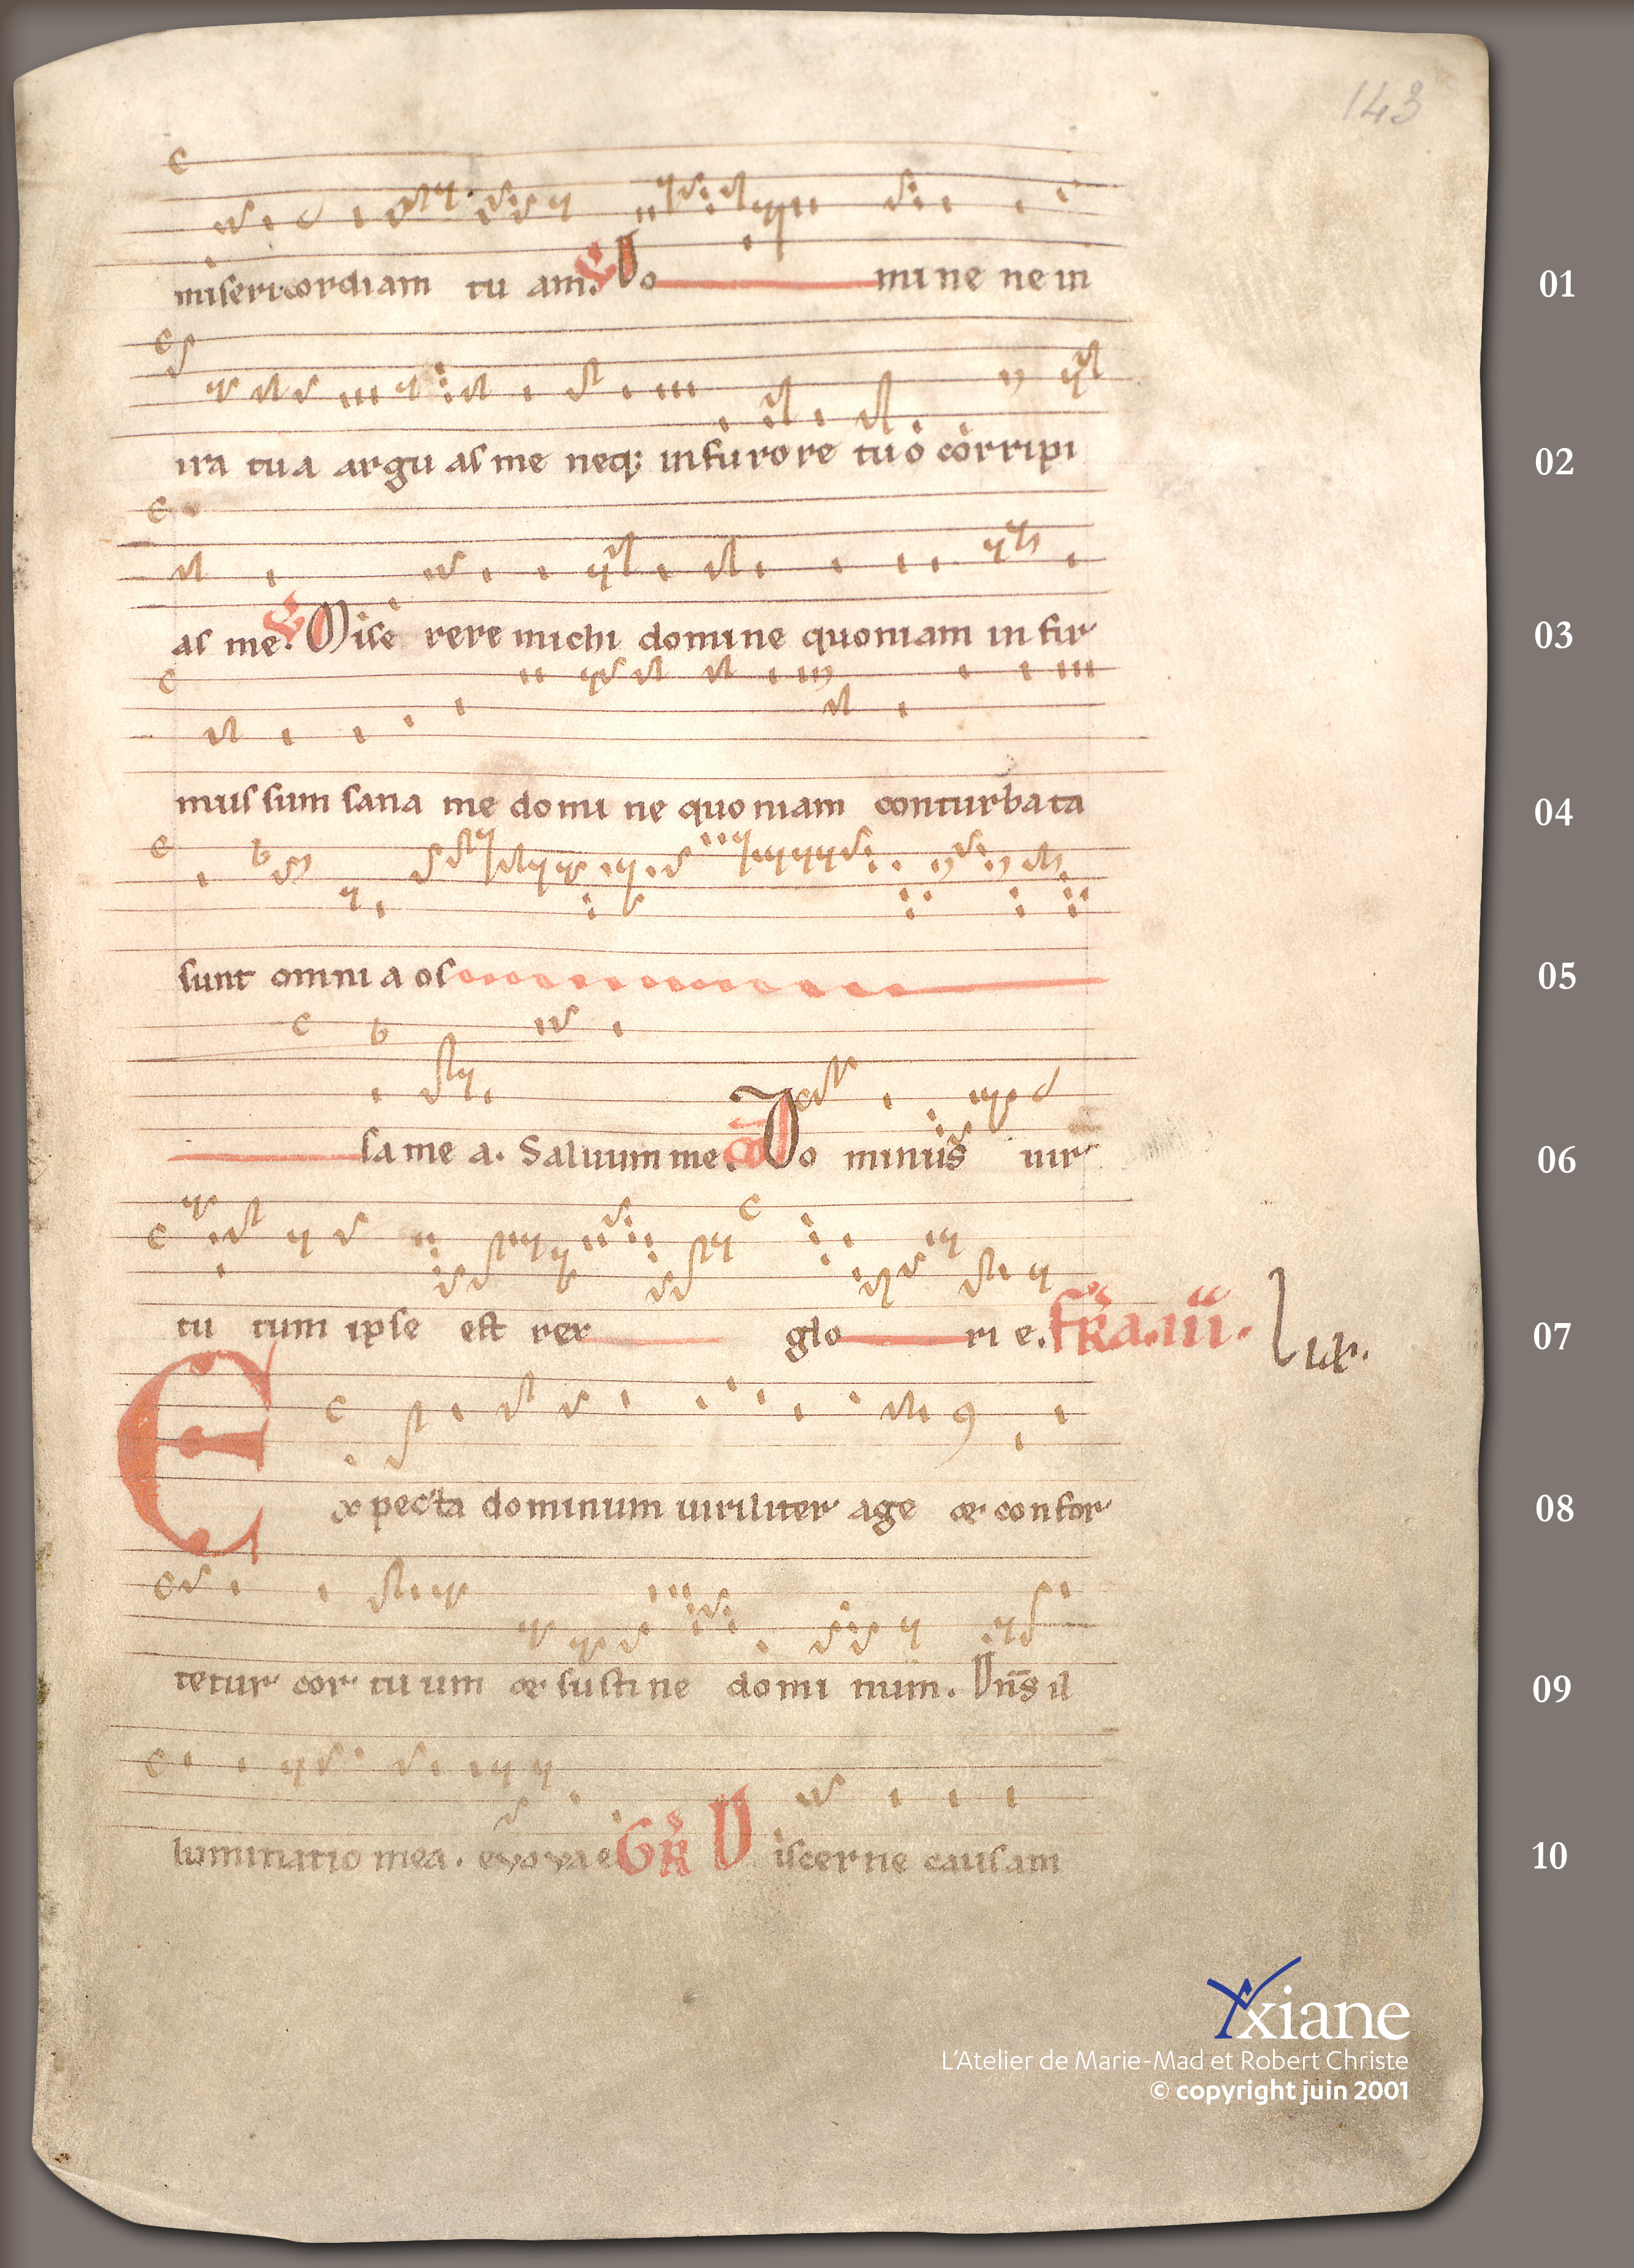 143
misericordiam tu am. Do mine ne in 01
ira tua argu as me neq; in furore tuo corripi 02
as me. Mise rere michi domine quoniam in fir 03
mus sum sana me domi ne quoniam conturbata 04
sunt omni a os 05
sa me a. Saluum me. Do minus uir 06
tu tum ipse est rex glo ri e. fr̄a. iii. 07
Expecta dominum uiriliter age & confor 08
tetur cor tuum & sustine domi num. Dn̄s il 09
luminatio mea. evovae GR Discerne causam 10
Yxiane
L'Atelier de Marie-Mad et Robert Christe
© copyright juin 2001